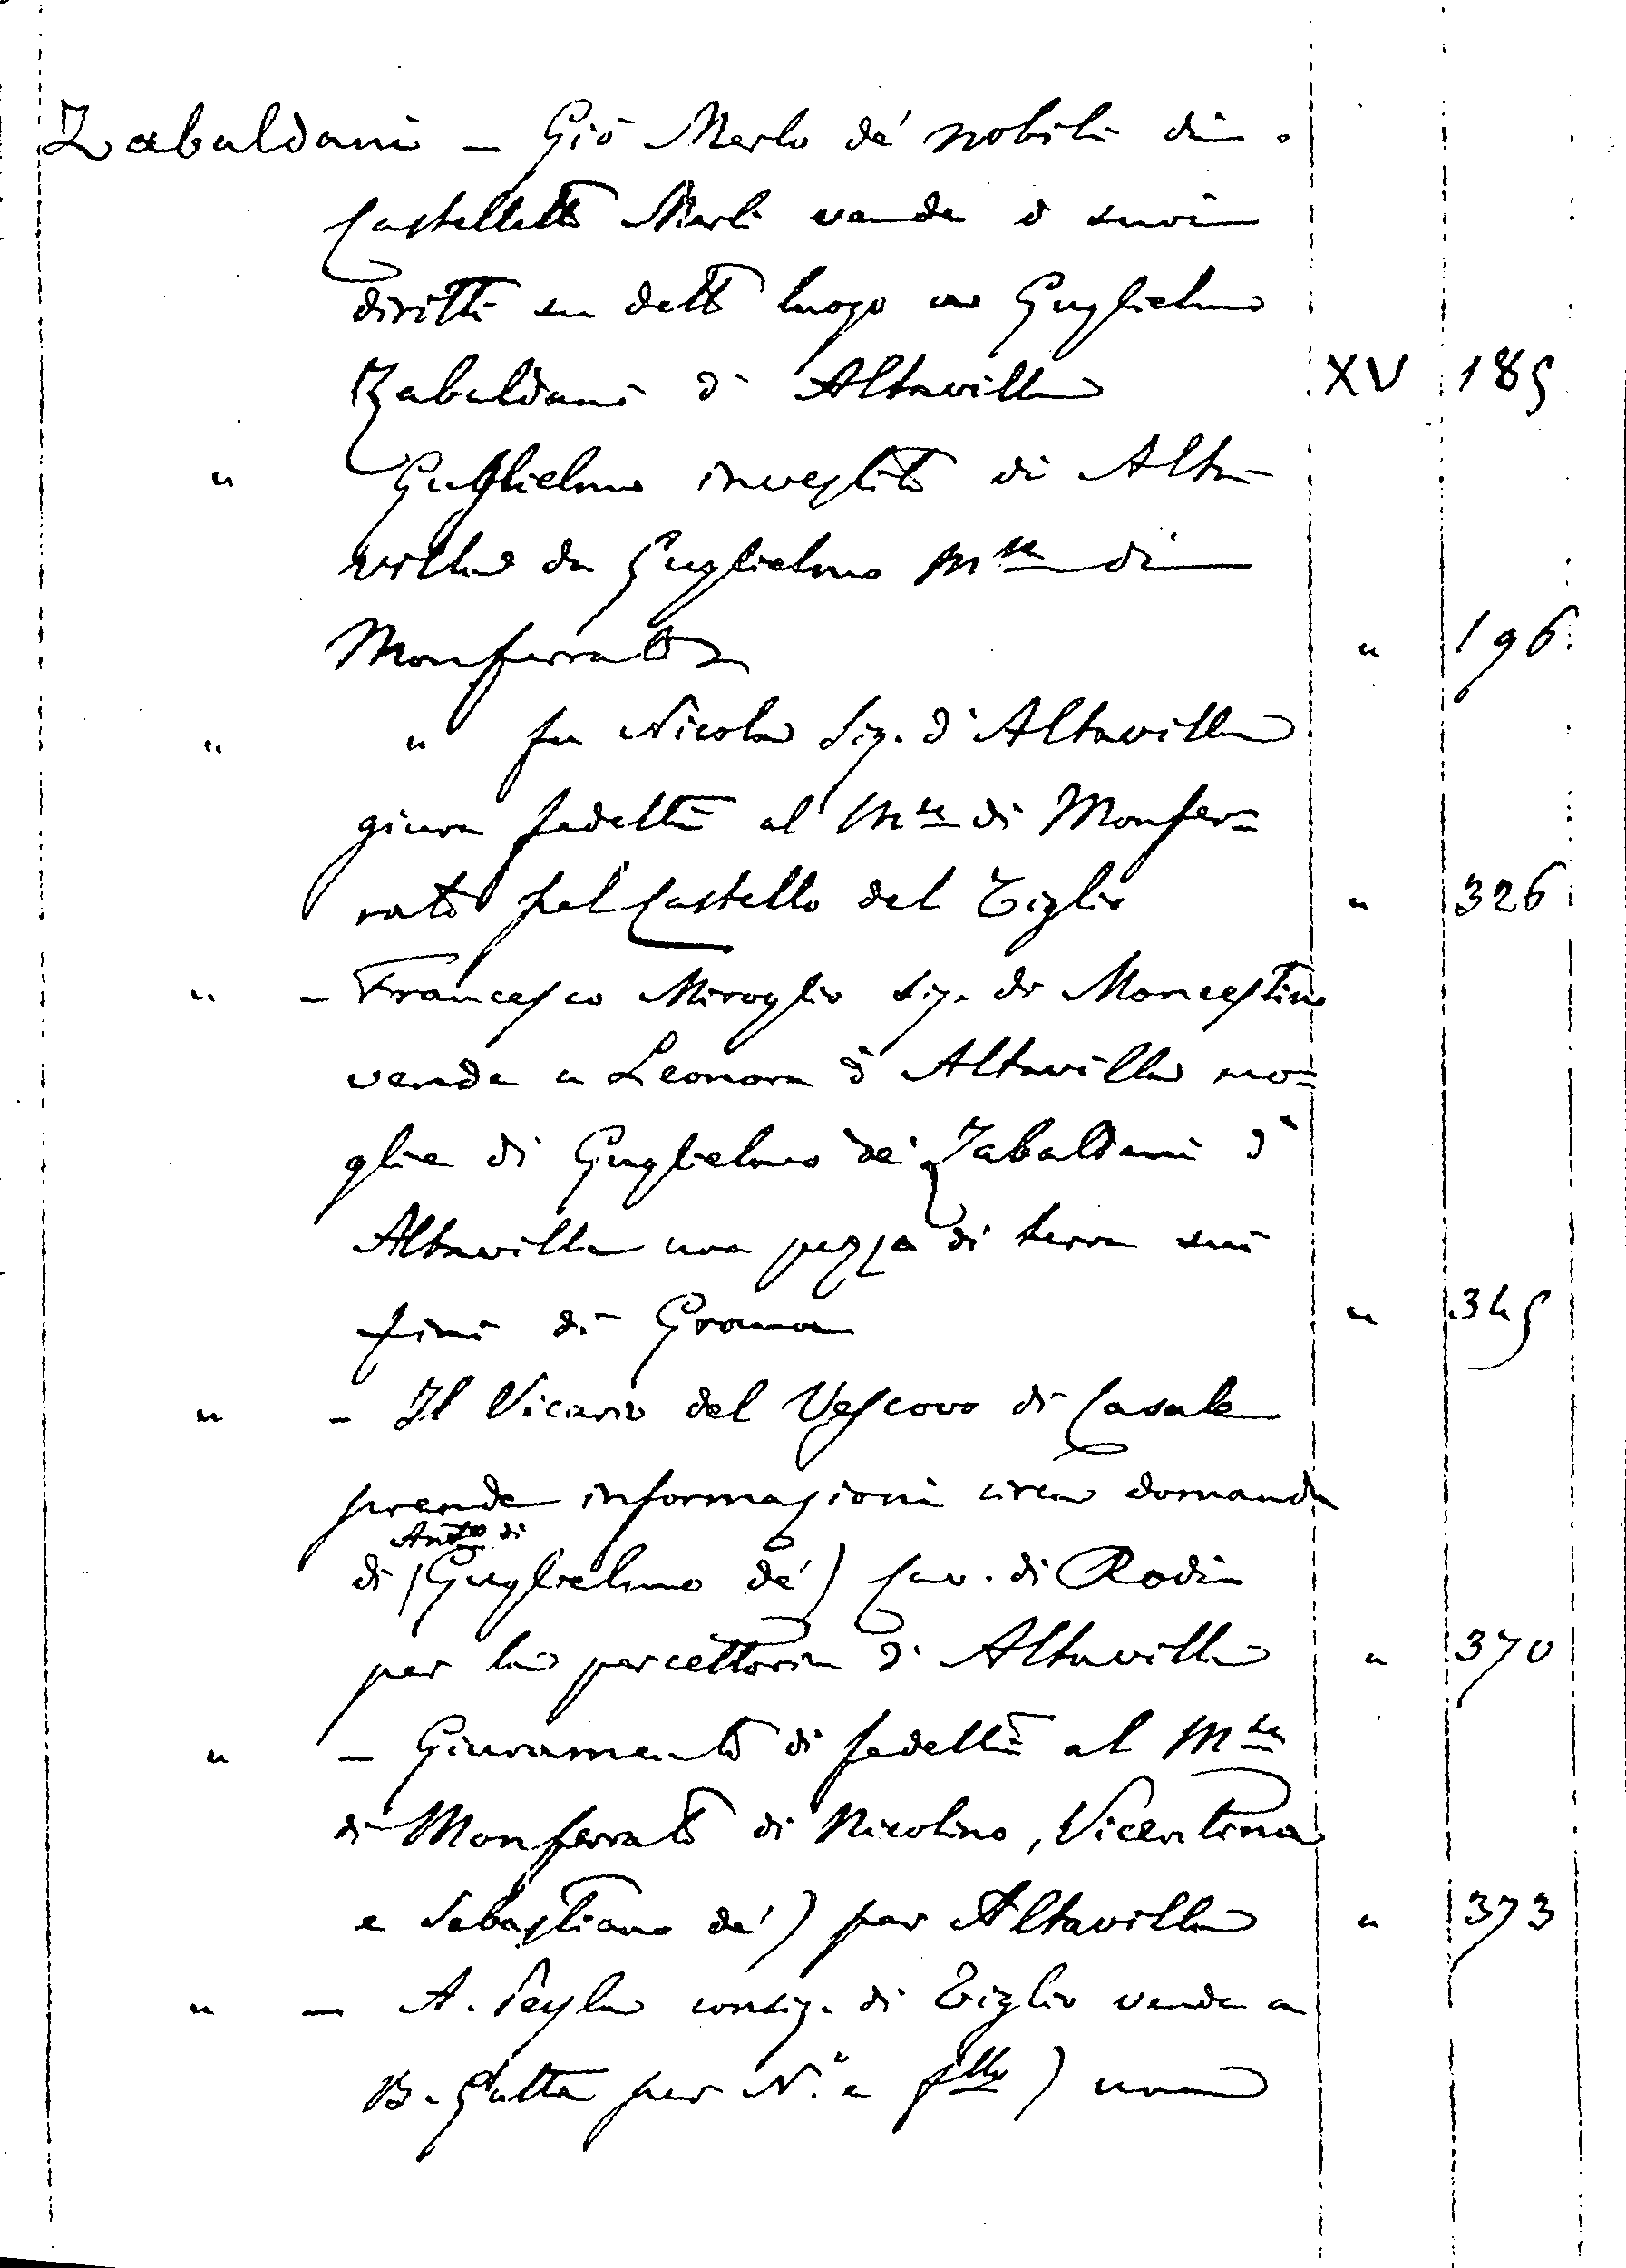 Zabaldani – Giõ Merlo de' nobili di
Castelletto Merli vende i suoi
diritti su detto luogo a Guglielmo
Zabaldani d' Altavilla XV 185
" Guglielmo investito di Alta-
villa da Guglielmo Mse di
Monferrato " 196
" " fu Nicola Sig. d' Altavilla
giura fedeltà al Mse di Monfer=
rato pel Castello del Tiglio " 326
" – Francesco Miroglio Sig. di Moncestino
vende a Leonora d' Altavilla mo=
glie di Guglielmo de' Zabaldani d'
Altavilla una pezza di terra sui
fini di Grana " 345
" – Il Vicario del Vescovo di Casale
prende informazioni circa domanda
Anto di
di (Guglielmo de') Cav. di Rodi
per la percettoria d' Altavilla " 370
" – Giuramento di fedeltà al Mse
di Monferrato di Nicolino, Vicentino
e Sebastiano de') per Altavilla " 373
" – A. consig. di Tiglio vende a
B. Gatta per N. e flli) una